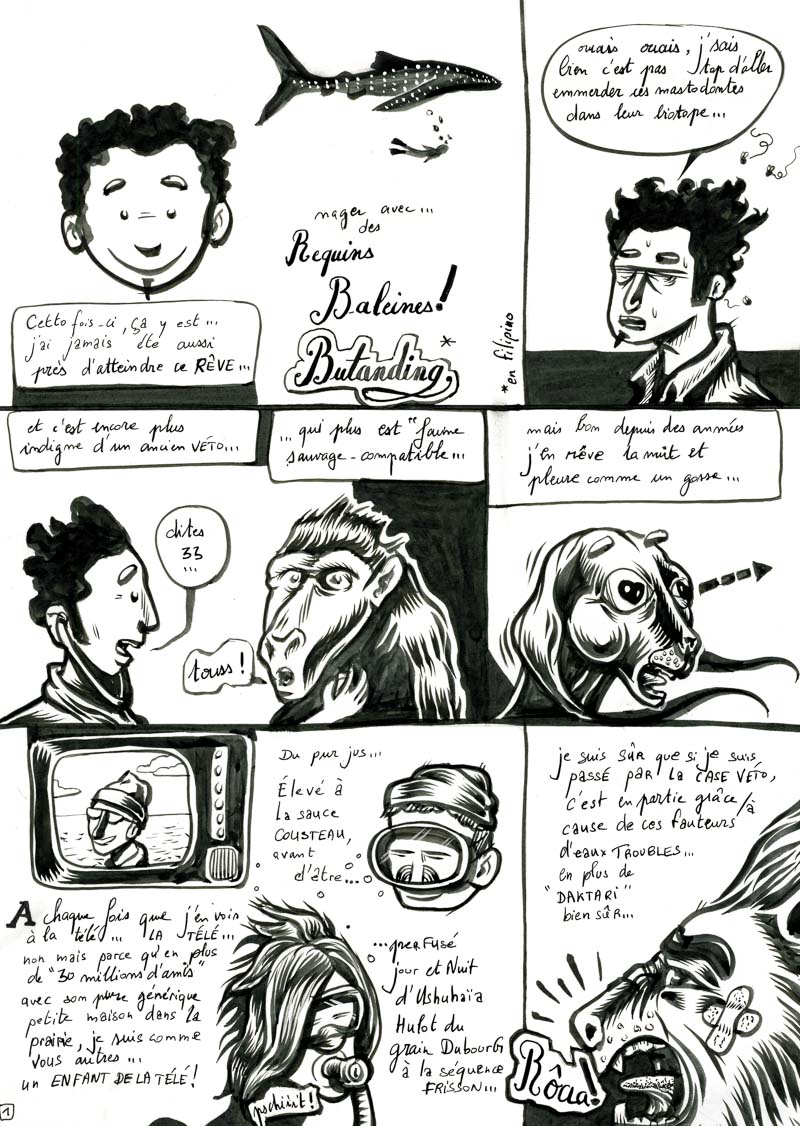 Cette fois-ci, ça y est...
j'ai jamais été aussi
près d'atteindre ce RÊVE...
nager avec...
des
Requins
Baleines!
Butanding *
*en filipino
ouais ouais, j'sais
bien c'est pas top d'aller
emmerder ces mastodontes
dans leur biotope...
et c'est encore plus
indigne d'un ancien VÉTO...
dites
33
...
... qui plus est "faune
sauvage-compatible...
touss!
mais bon depuis des années
j'en rêve la nuit et
pleure comme un gosse...
A chaque fois que j'en vois
à la télé... LA TÉLÉ...
non mais parce qu'en plus
de "30 millions d'amis"
avec son pure générique
petite maison dans la
prairie, je suis comme
vous autres...
un ENFANT DE LA TÉLÉ!
Du pur jus...
Élevé à
la sauce
COUSTEAU,
avant
d'être...
...perfusé
jour et Nuit
d'Ushuhaïa
Hulot du
grain Dubourg
à la séquence
FRISSON...
pschiiit!
je suis sûr que si je suis
passé par la CASE VÉTO,
c'est en partie grâce/à
cause de ces fauteurs
d'eaux TROUBLES...
en plus de
"DAKTARI"
bien sûr...
Rôaa!
1